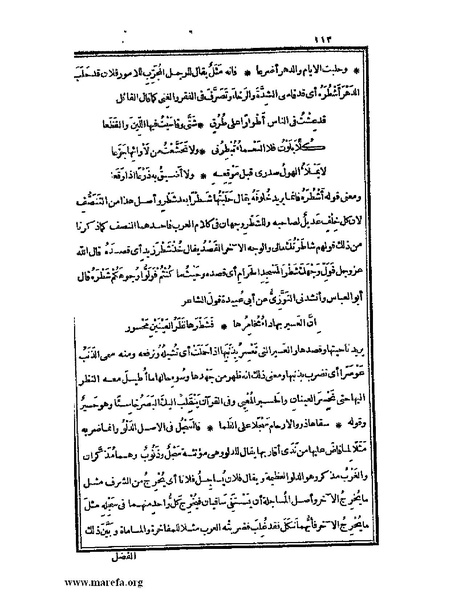 ١١٣
* وحلبت الايام والدهر أضرعا * فانه مثل يقال للرجل المجرب للامور فلان قد حلب
الدهر أشطره أى قد قاسى الشدة والرخاء وتصرف فى الفقر والغنى كما قال القائل
قد عشت فى الناس أطوارا على طرق * شتى وقاسيت فيها اللين والفظعا
كلا بلوت فلا النعماء تبطرنى * ولا تخشعت من لأوائها جزعا
لا يملأ الهول صدرى قبل موقعه * ولا أضيق به ذرعا اذا وقعا
ومعنى قوله أشطره فانما يريد خلوفه يقال حلبتها شطرا بعد شطر وأصل هذا من التنصف
لان كل خلف عديل لصاحبه وللشطر وجهان فى كلام العرب فأحدهما النصف كما ذكرنا
من ذلك قولهم شاطرتك مالى والوجه الآخر القصد يقال خذ شطر زيد أى قصده قال الله
عز وجل فول وجهك شطر المسجد الحرام أى قصده وحيثما كنتم فولوا وجوهكم شطره قال
أبو العباس وأنشدنى التوزى عن أبى عبيدة قول الشاعر
ان العسير بها داء مخامرها * فشطرها نظر العينين محسور
يريد ناحيتها وقصدها والعسير التى تعسر بذنبها اذا حملت أى تشيله وترفعه ومنه سمى الذنب
عوسرا أى تضرب بذنبها ومعنى ذلك انه ظهر من جهدها وسوء حالها ما أطيل معه النظر
اليها حتى تحسر العينان والحسير المعيى وفى القرآن ينقلب اليك البصر خاسئا وهو حسير
وقوله * سقاها ذوو الارحام سجلا على الظما * فالسجل فى الاصل الدلو وانما ضربه
مثلا لما فاض عليها من ندى أقاربها يقال للدلو وهى مؤنثة سجل وذنوب وهما مذكران
والغرب مذكر وهو الدلو العظيمة ويقال فلان يساجل فلانا أى يخرج من الشرف مثل
ما يخرج الآخر وأصل المساجلة أن يستقى ساقيان فيخرج كل واحد منهما فى سجله مثل
ما يخرج الآخر فأيهما نكل فقد غلب فضربته العرب مثلا للمفاخرة والمساماة وبين ذلك
الفضل
www.marefa.org